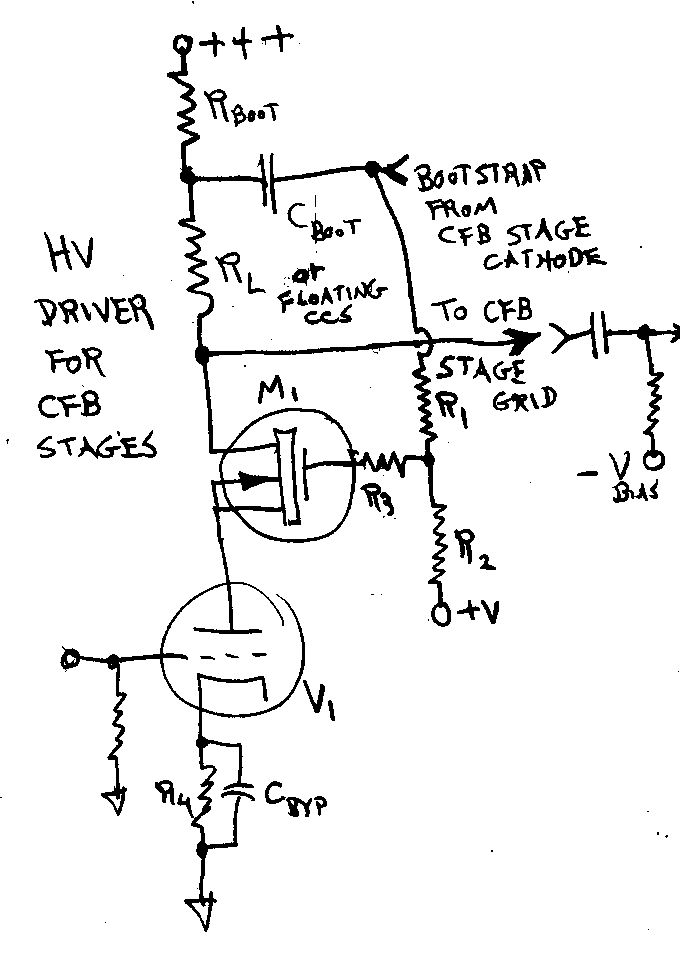 +++
R BOOT
C BOOT
BOOTSTRAP
FROM
CFB STAGE
CATHODE
HV
DRIVER
FOR
CFB
STAGES
R L
or
FLOATING
CCS
TO CFB
STAGE
GRID
M1
R1
R3
- V BIAS
R2
+V
V1
R4
C BYP